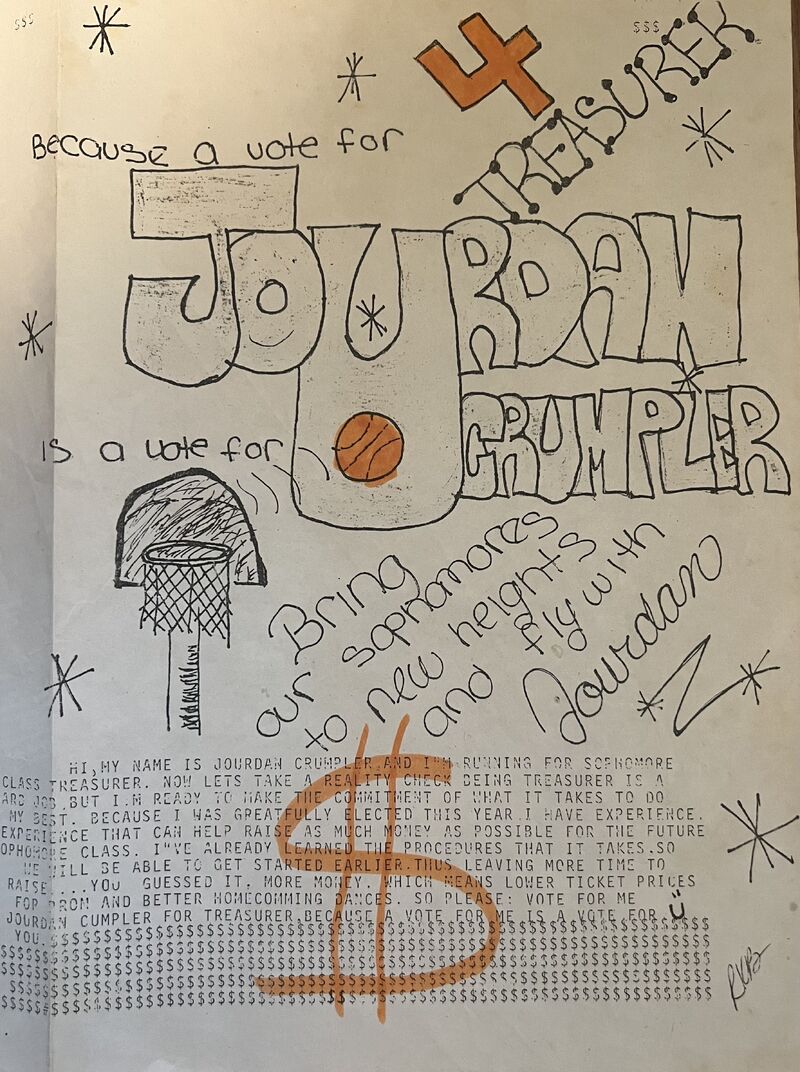 $$$
$$$
4
TREASURER
BECAUSE a vote for
JOURDAN
CRUMPLER
IS a vote for
Bring
our sophomores
to new heights
and fly with
Jourdan
HI,MY NAME IS JOURDAN CRUMPLER AND I"M RUNNING FOR SOPHOMORE
CLASS TREASURER. NOW LETS TAKE A REALITY CHECK BEING TREASURER IS A
ARD JOB,BUT I.M READY TO MAKE THE COMMITMENT OF WHAT IT TAKES TO DO
MY BEST. BECAUSE I WAS GREATFULLY ELECTED THIS YEAR.I HAVE EXPERIENCE.
EXPERIENCE THAT CAN HELP RAISE AS MUCH MONEY AS POSSIBLE FOR THE FUTURE
OPHOMORE CLASS. I"VE ALREADY LEARNED THE PROCEDURES THAT IT TAKES.SO
WE WILL BE ABLE TO GET STARTED EARLIER.THUS LEAVING MORE TIME TO
RAISE....YOU GUESSED IT, MORE MONEY. WHICH MEANS LOWER TICKET PRICES
FOR PROM AND BETTER HOMECOMMING DANCES. SO PLEASE: VOTE FOR ME
JOURDAN CUMPLER FOR TREASURER.BECAUSE A VOTE FOR ME IS A VOTE FOR
YOU.$$$$$$$$$$$$$$$$$$$$$$$$$$$$$$$$$$$$$$$$$$$$$$$$$$$$$$$$$$$$$$$$
$$$$$$$$$$$$$$$$$$$$$$$$$$$$$$$$$$$$$$$$$$$$$$$$$$$$$$$$$$$$$$$$$$$$$$
$$$$$$$$$$$$$$$$$$$$$$$$$$$$$$$$$$$$$$$$$$$$$$$$$$$$$$$$$$$$$$$$$$$$$$
$$$$$$$$$$$$$$$$$$$$$$$$$$$$$$$$$$$$$$$$$$$$$$$$$$$$$$$$$$$$$$$$$$$$$$
$$$$$$$$$$$$$$$$$$$$$$$$$$$$$$$$$$$$$$$$$$$$$$$$$$$$$$$$$$$$$$$$$$$$$$
$